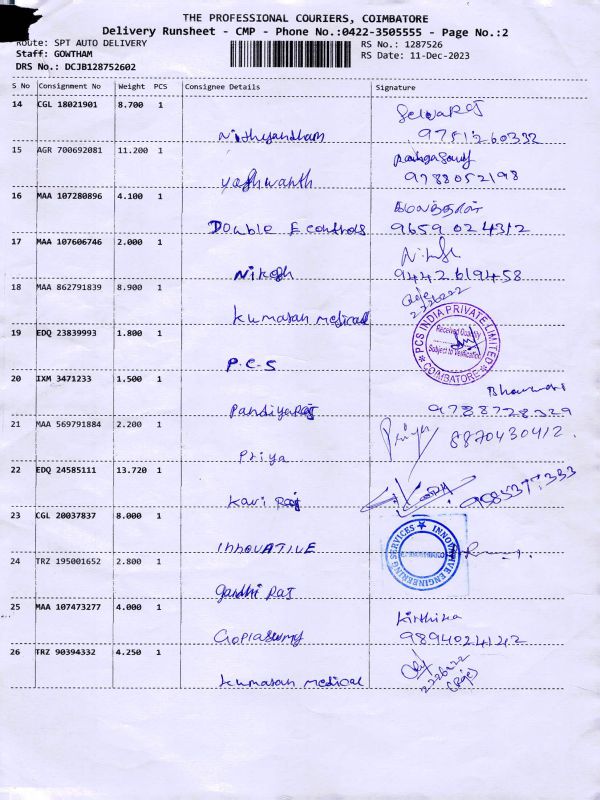 THE PROFESSIONAL COURIERS, COIMBATORE
Delivery Runsheet - CMP - Phone No.:0422-3505555 - Page No.:2
Route: SPT AUTO DELIVERY
RS No.: 1287526
Staff: GOWTHAM
RS Date: 11-Dec-2023
DRS No.: DCJB128752602
S No Consignment No Weight PCS Consignee Details Signature
14 CGL 18021901 8.700 1
Nithyandham
Selvaraj
9751260332
15 AGR 700692081 11.200 1
yashwanth
9788052198
16 MAA 107280896 4.100 1
Double E controls
9659024312
17 MAA 107606746 2.000 1
Nikesh
9442619458
18 MAA 862791839 8.900 1
kumaran medical
19 EDQ 23839993 1.800 1
P.C.S
PCS INDIA PRIVATE LIMITED
Received Quantity
Subject to Verification
COIMBATORE
20 IXM 3471233 1.500 1
Pandiyaraj
9788728329
21 MAA 569791884 2.200 1
Priya
Priya
8870430412.
22 EDQ 24585111 13.720 1
Kavi Raj
23 CGL 20037837 8.000 1
INNOVATIVE
INNOVATIVE ENGINEERING SERVICES
24 TRZ 195001652 2.800 1
Gandhi Raj
25 MAA 107473277 4.000 1
Kirthika
9894024142
26 TRZ 90394332 4.250 1
kumaran medical